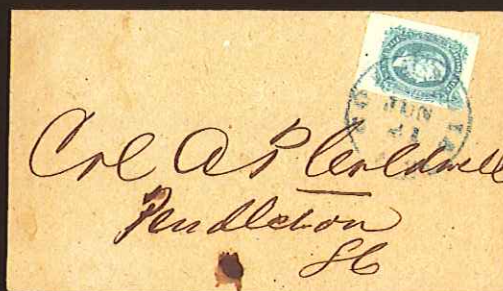 JUN
Col A P Caldwell
Pendleton
SC